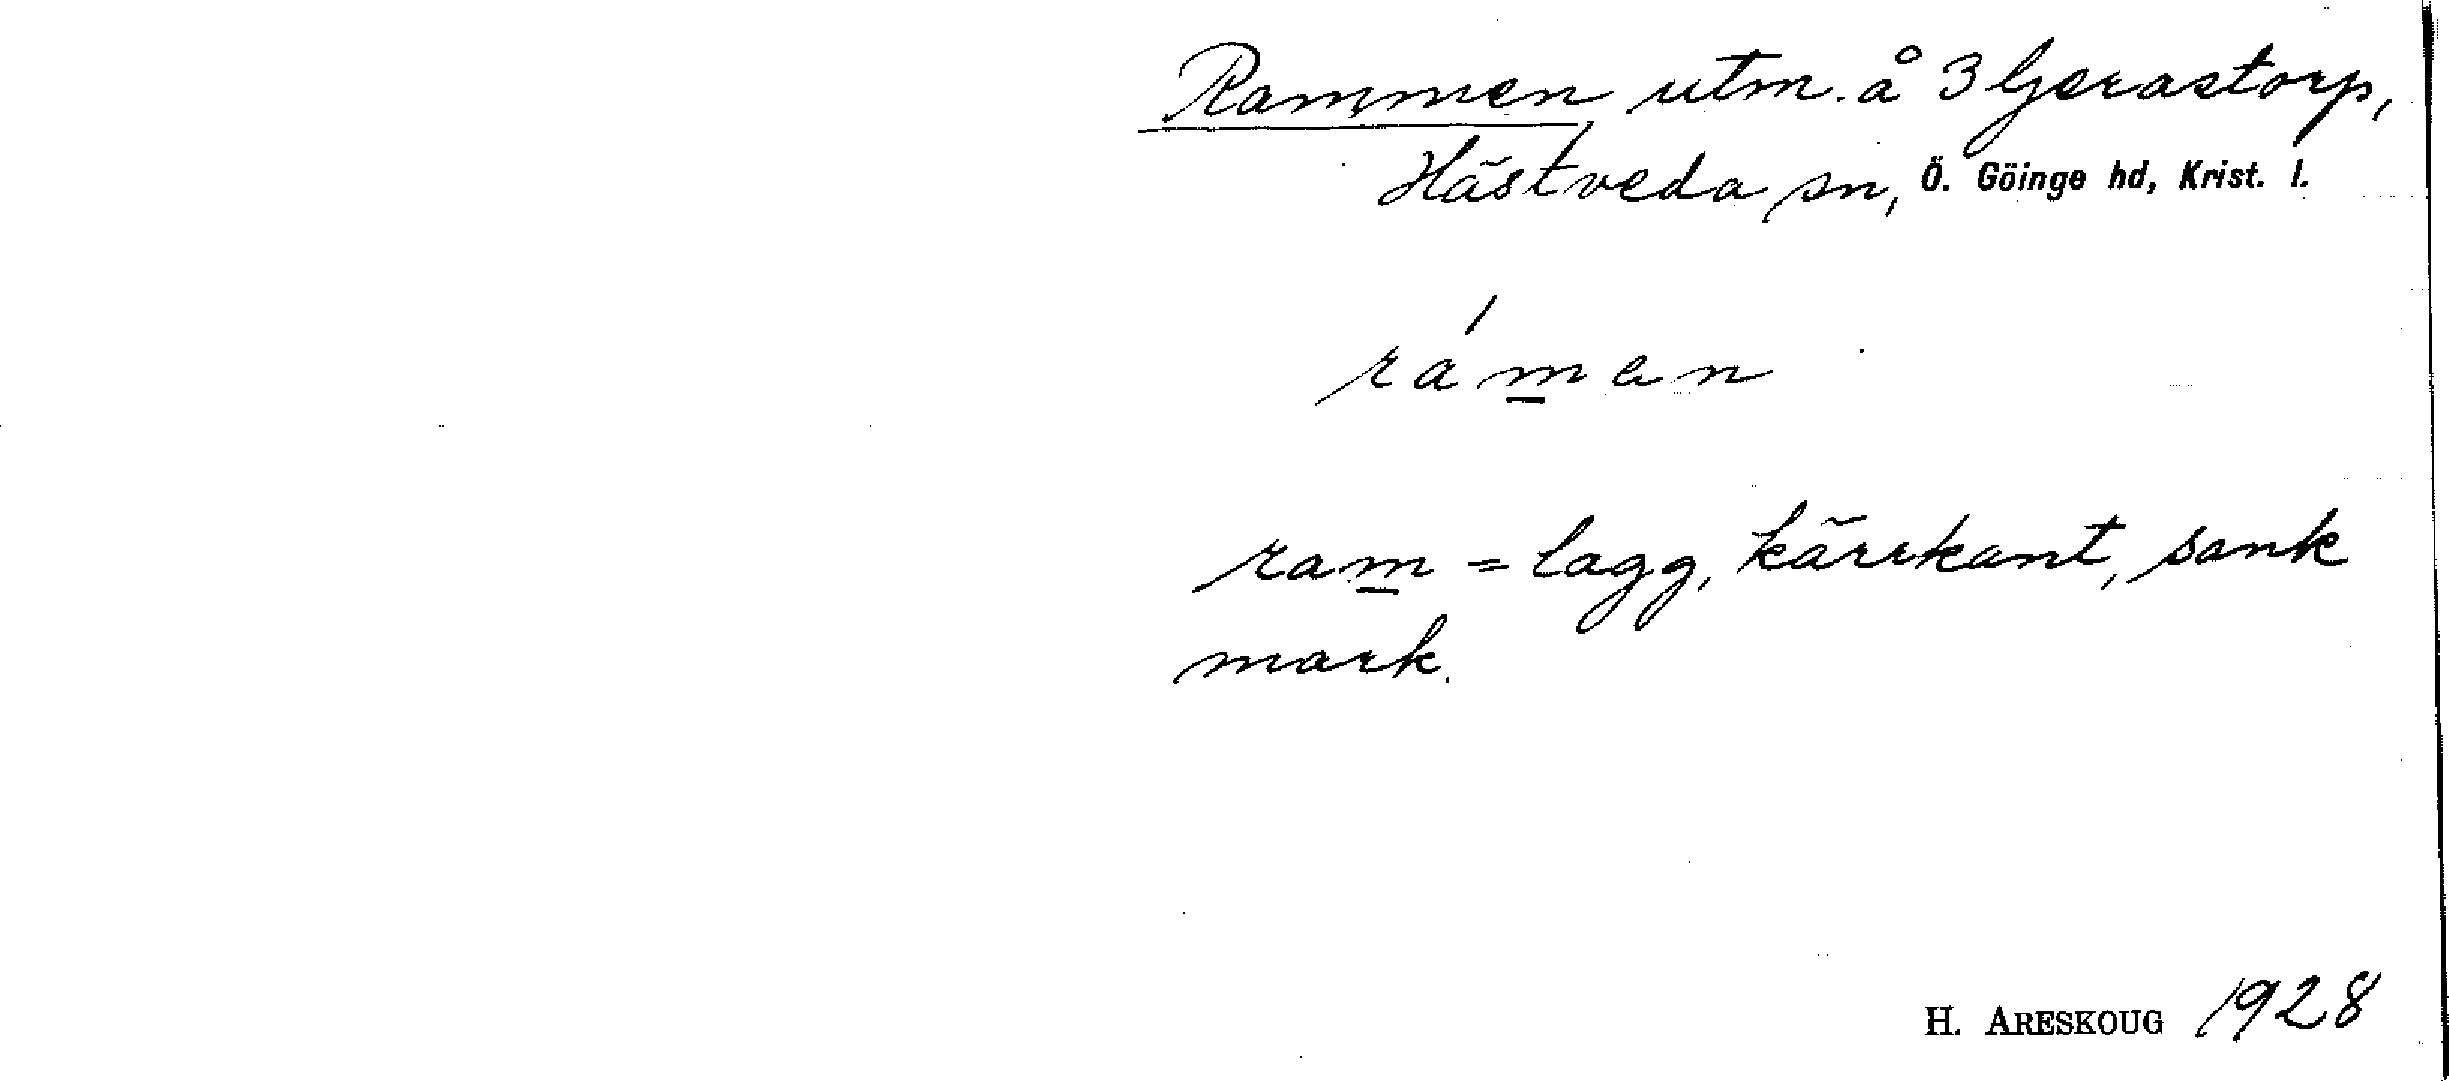 Rammen utm. å 3 Gerastorp,
Hästveda sn, Ö. Göinge hd, Krist. l.
rámen
ram = lagg, kärrkant, sank
mark.
H. ARESKOUG 1928